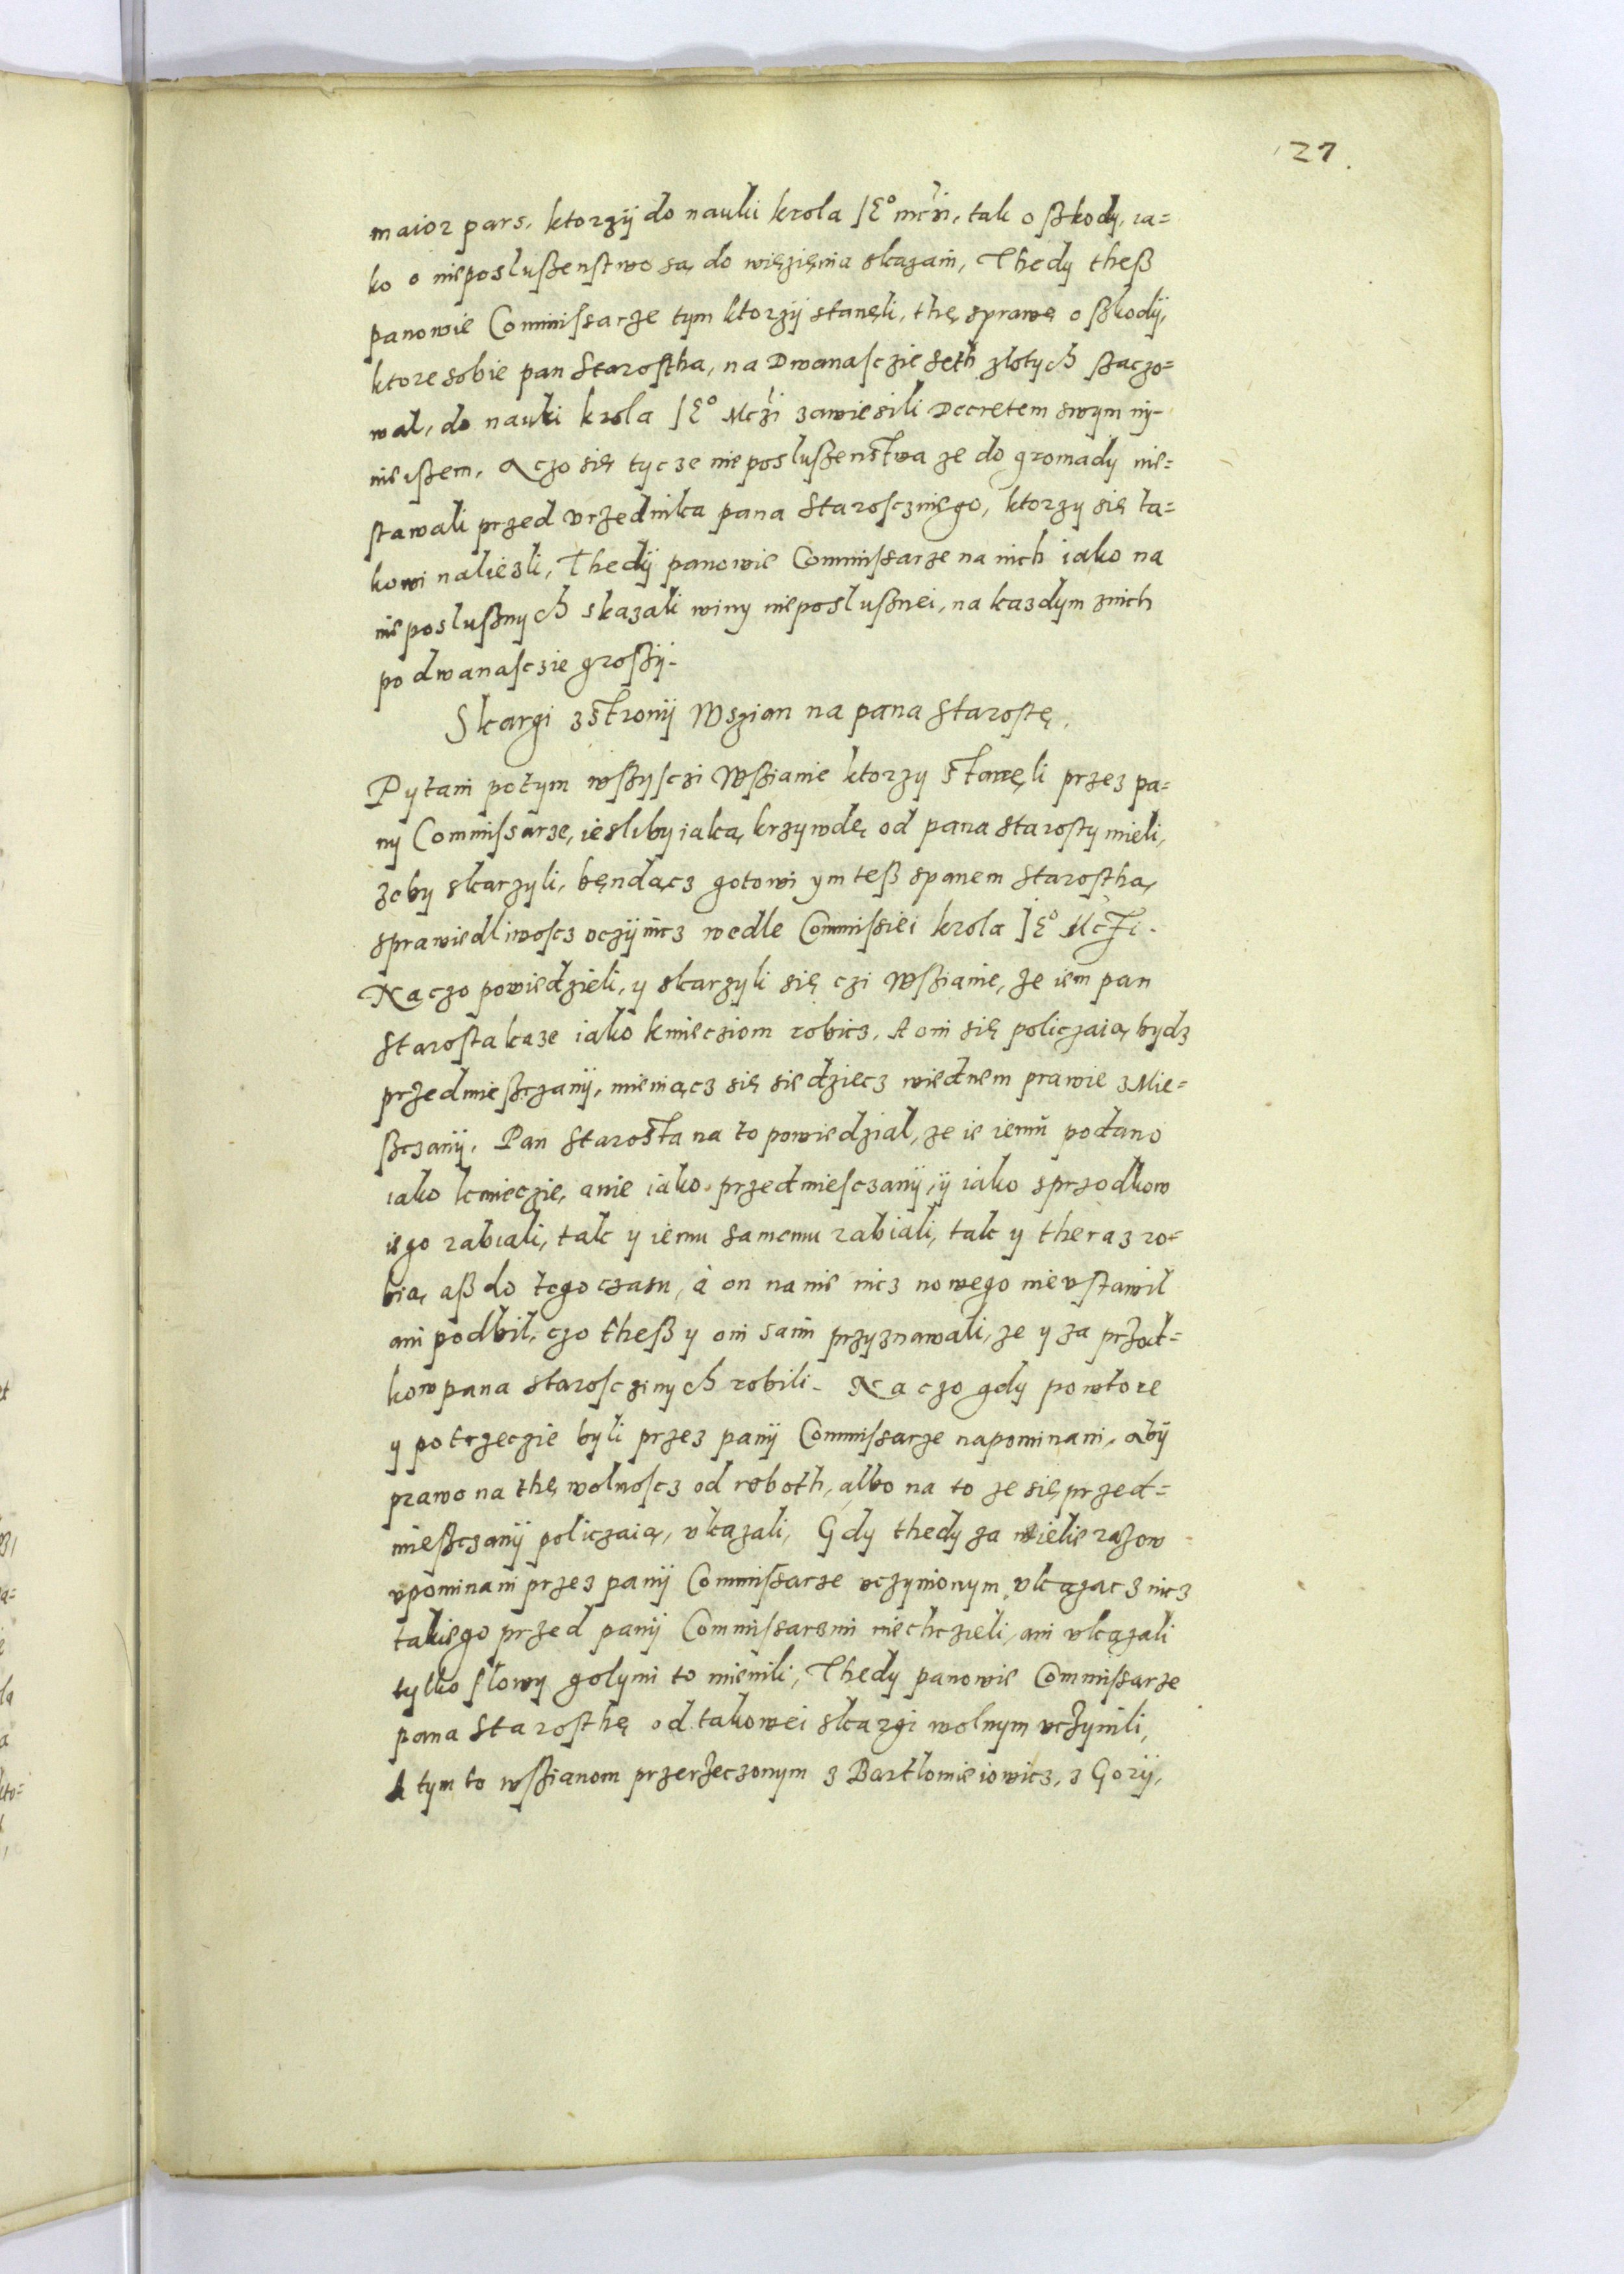 27
maior pars. ktorzÿ do nauki krola JE° mczi, tak o ßkody, ia=
ko o nieposlußenstwo są do więzięnia skazani, Thedy theß
panowie Commissarze tym ktorzÿ stanęli, thę sprawę o ßkodÿ,
ktore sobie pan Starostha, na Dwanasczie seth zlotych ßaczo=
wal, do nauki krola JE° Mczi zawiesili Decretem swym ny-
nieißem. A czo się tycze nieposlußenstwa ze do gromady nie=
stawali przed vrzednika pana Starosczinego, ktorzy się ta=
kowi naliezli, Thedÿ panowie Commissarze na nich iako na
nieposlußnych skazali winy nieposlußnei, na kazdym znich
po dwanasczie groszÿ.
Skargi zstronÿ Wszian na pana Starostę.
Pytani potym wßysczi Wßianie ktorzy stanęli przez pa=
ny Commissarze, iesliby iaką krzywdę od pana Starosty mieli,
zeby skarzyli, bęndącz gotowi ym teß spanem Starosthą
sprawiedliwoscz vczÿnicz wedle Commissiei krola JE° Mczi.
Na czo powiedzieli, y skarzyli się czi Wßianie, ze iem pan
Starosta kaze iako kmieciom robicz. A oni się policzaią bydz
przedmießczanÿ, mieniącz się siedziecz wiednem prawie z Mie=
ßczanÿ. Pan Starosta na to powiedzial, ze ie iemu podano
iako kmieczie, a nie iako przedmiesczanÿ, ÿ iako sprzodkow
iego rabiali, tak y iemu samemu rabiali, tak y theraz ro=
bią, aß do tego czasu, à on na nie nicz nowego nievstawil
ani podbil, czo theß y oni sami przyznawali, ze y za przod=
kow pana Starosczinych robili. Na czo gdy powtore
y potrzeczie byli przez panÿ Commissarze napominani, abÿ
prawo na thę wolnoscz od roboth, albo na to ze się przed=
mießczanÿ policzaią, vkazali, Gdy thedy za wielie razow
vpominani przez panÿ Commissarze vczynionym, vkązacz nicz
takiego przed panÿ Commissarzmi niechczieli, ani vkązali
tylko slowy golymi to mienili, Thedy panowie Commissarze
pana Starosthę od takowei skargi wolnym vczynili,
A tym to wßianom przerzeczonym z Bartlomieiowicz, z Gorÿ,